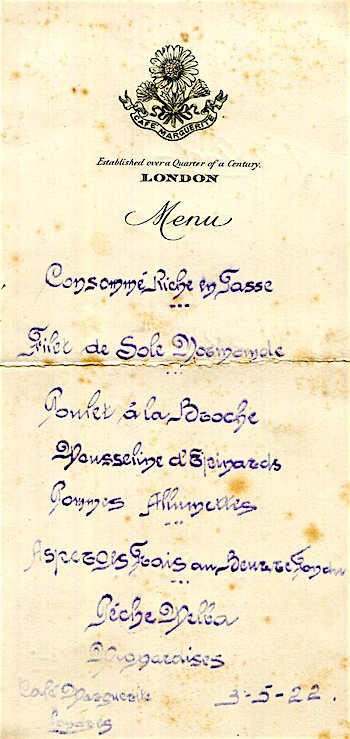 CAFÉ MARGUERITE
Established over a Quarter of a Century.
LONDON
Menu
Consommé Riche en Tasse
Filet de Sole Normande
Poulet à la Broche
Mousseline d'Epinards
Pommes Allumettes
Asperges Frais au Beurre Fondu
Pêche Melba
Mignardises
Café Marguerite 3-5-22.
Londres